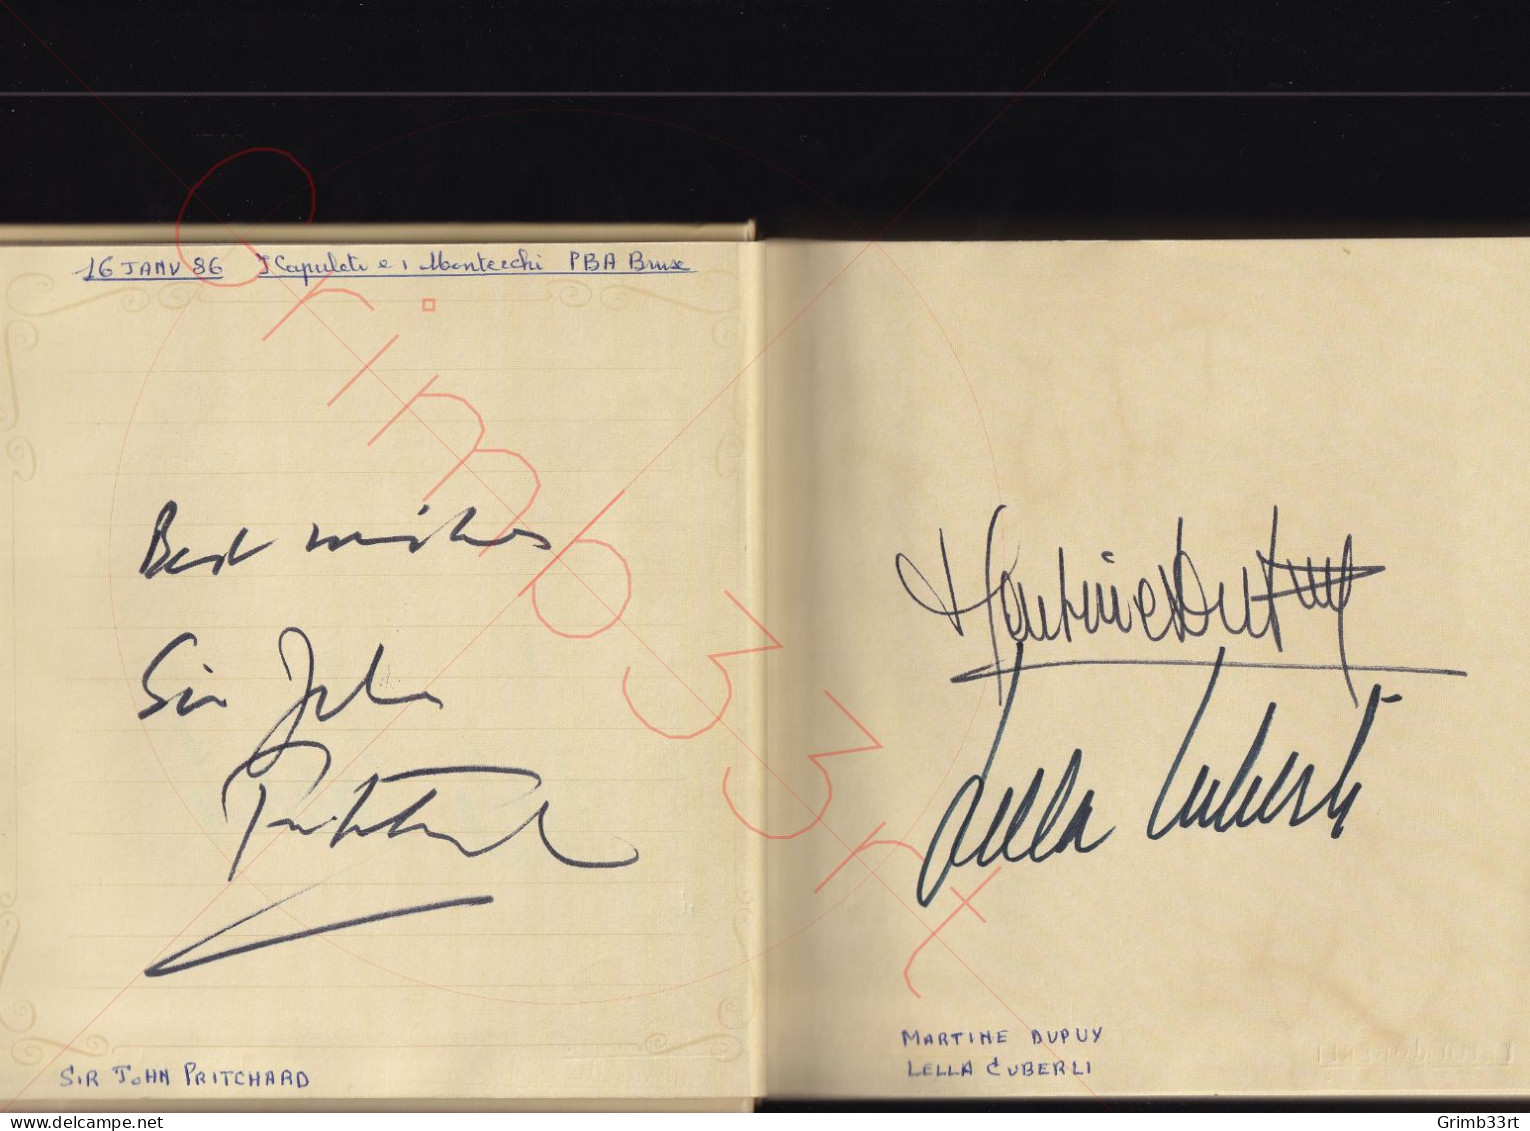 16 JANV 86 I Capuleti e i Montecchi PBA Brux
Best wishes
Sir John
Pritchard
SIR JOHN PRITCHARD
Martine Dupuy
Lella Cuberli
MARTINE DUPUY
LELLA CUBERLI
Grimb33rt
© delcampe.net
Grimb33rt